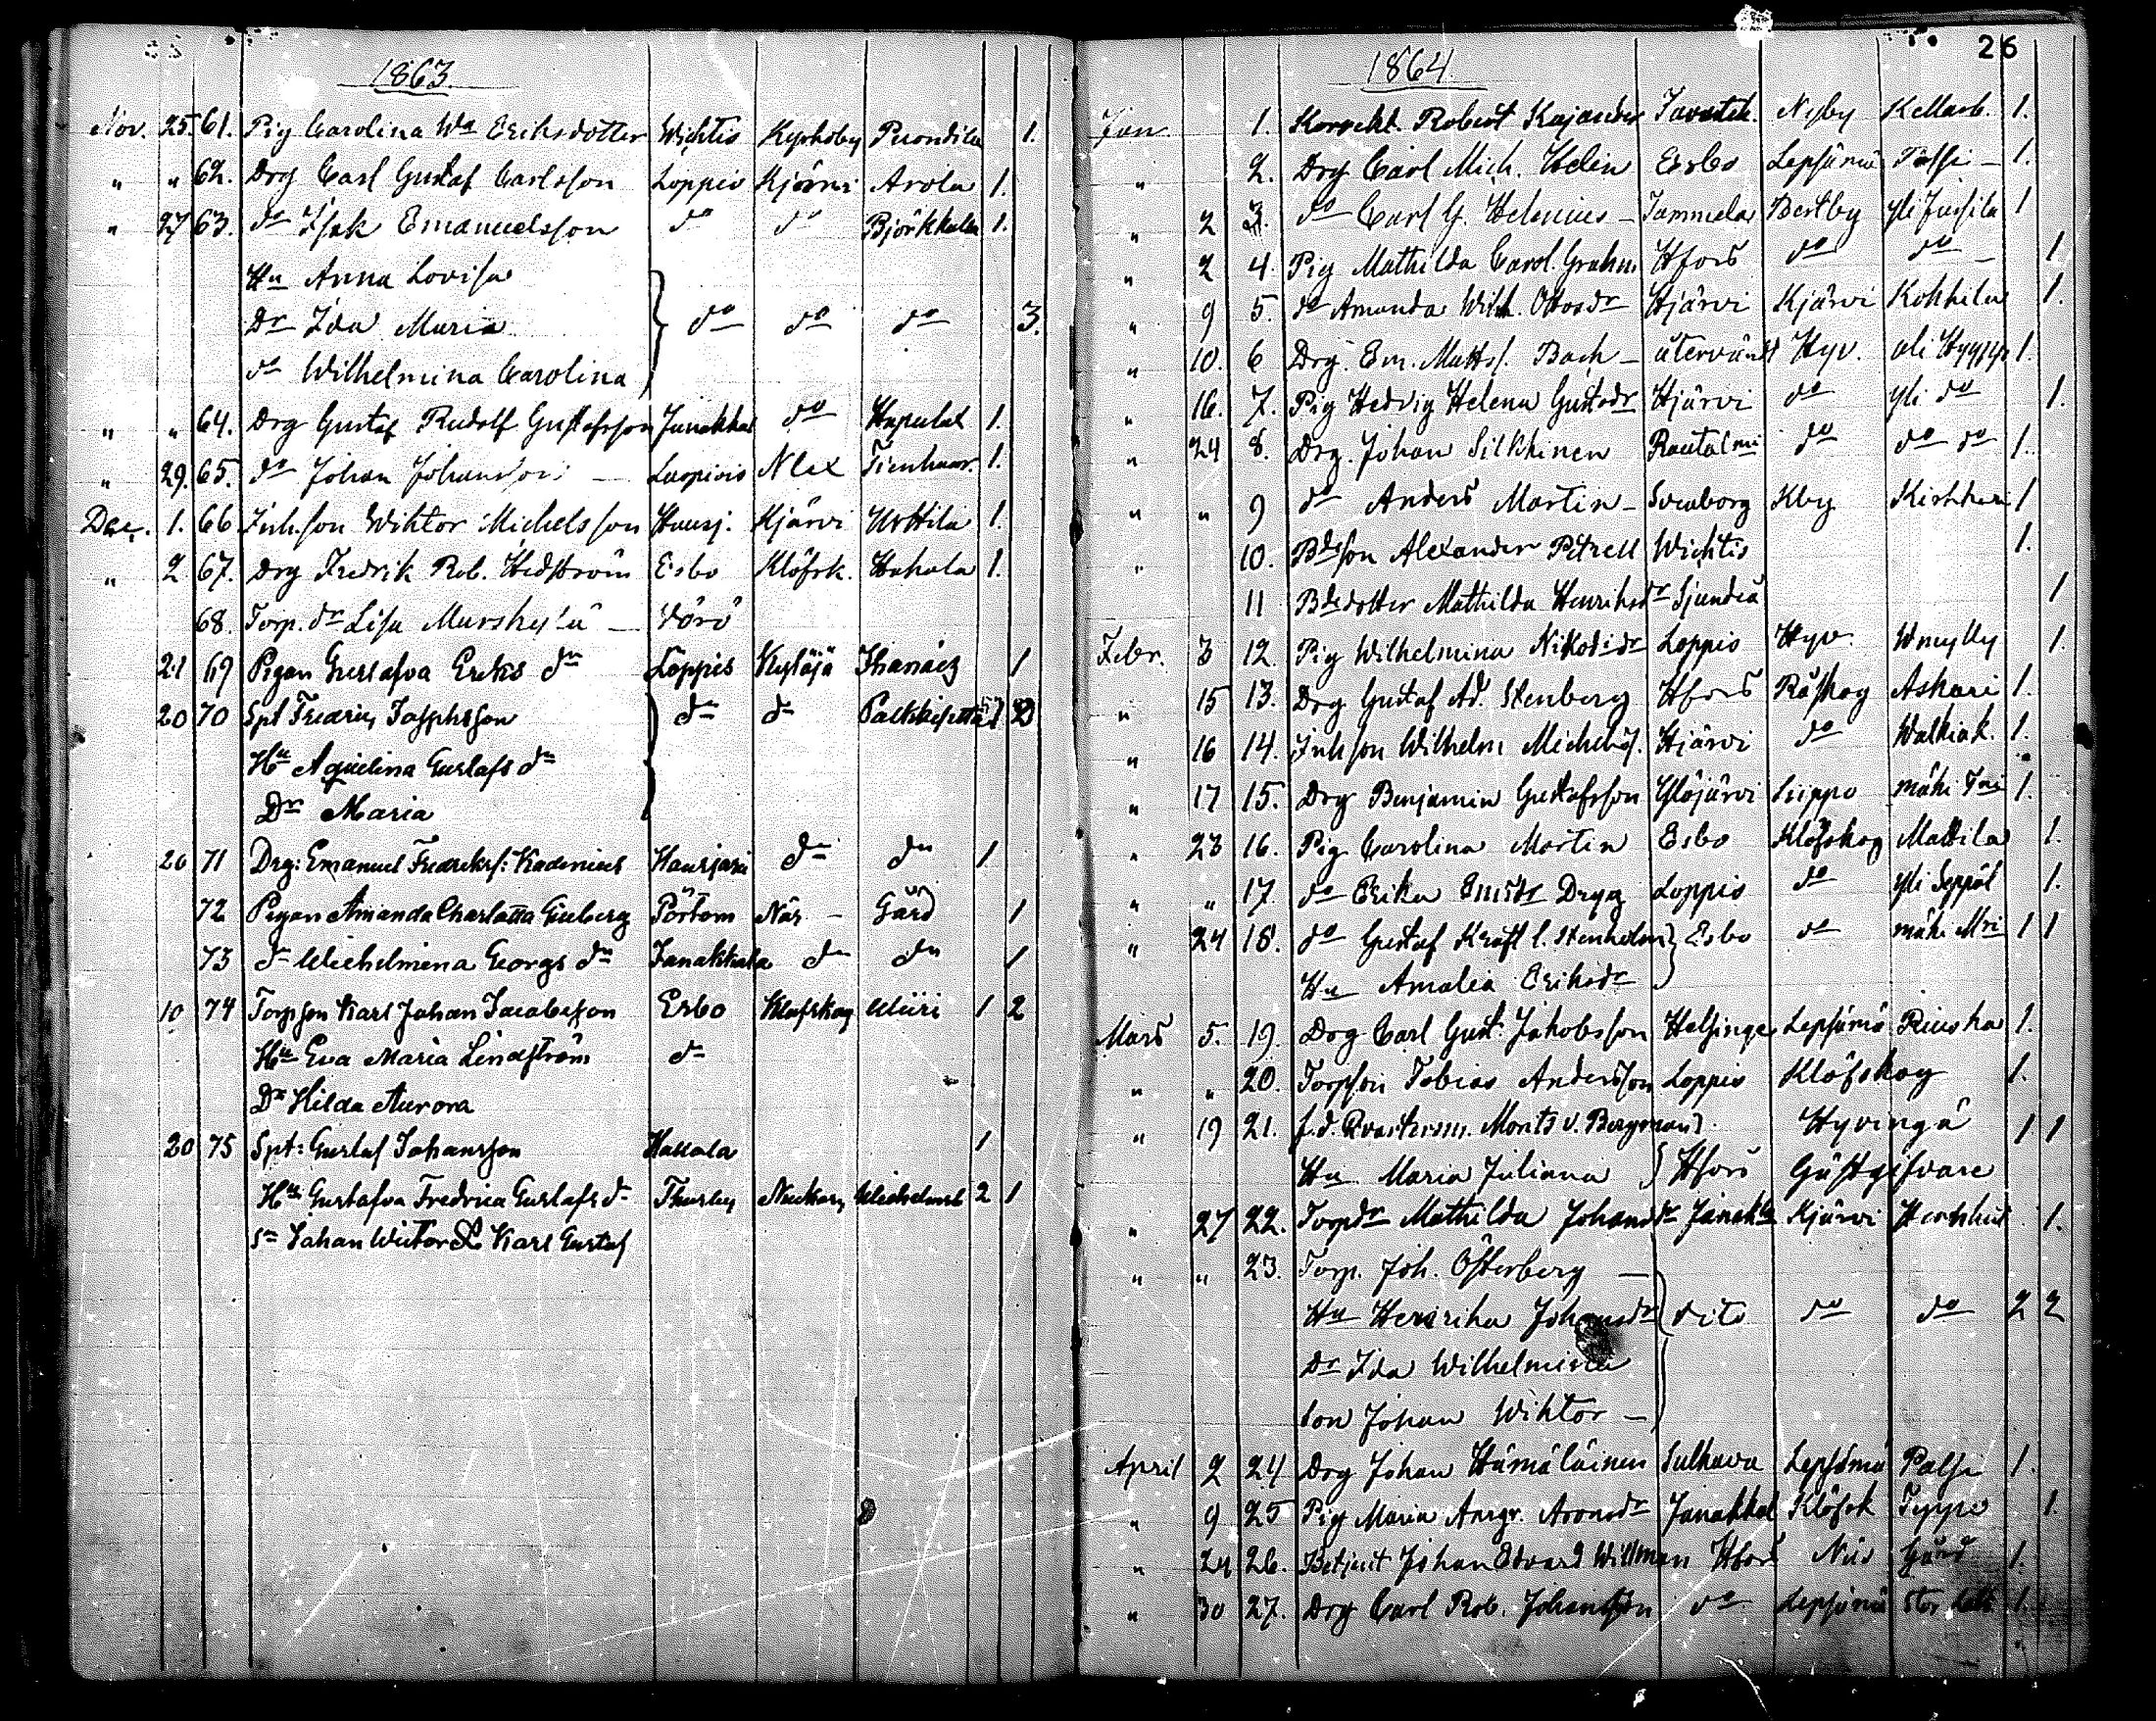 1863
Nov. 25. 61. Pig Carolina Wa Eriksdotter Wichtis Kyrkoby 1.
" " 62. Drg Carl Gustaf Carlsson Loppis Kjärvi Arola 1.
" 27 63. do Isak Emanuelsson do do Björkkulla 1.
Hu Anna Lovisa
Dr Ida Maria do do do 3.
do Wilhelmina Carolina
" " 64. Drg Gustaf Rudolf Gustafsson Janakkal do 1.
" 29. 65. do Johan Johansson — 1.
Dec. 1. 66 Inh.son Wiktor Michelsson Hausj. Kjärvi Uotila 1.
" 2 67. Drg Fredrik Rob. Hedström Esbo Klöfsk. Hakala 1.
68. Torp. dr Lisa — Vörö
21 69 Pigan Gustafva Ericks dr Loppis Kytäjä 1
20 70 Spt Fredric Josephsson do do
Hu Aqvelina Gustafs dr
Dr Maria
20 71 Drg: Emanuel Fredrikss: Kadenius Hausjärvi do do 1
72 Pigan Amanda Charlotta Pörtom När — Gård 1
73 do Wilhelmina Georgs dr Janakkala do do 1
10 74 Torpson Karl Johan Jacobsson Esbo Klöfskog 1 2
Hu Eva Maria Lindström do
Dr Hilda Aurora
20 75 Spt: Gustaf Johansson 1
Hu Gustafva Fredrica Gustafs dr Thusby 2 1
Sn Johan Victor & Karl Gustaf
26
1864
Jan. 1. Robert Kajander Tavasteh. Nyby Kellarb. 1.
" 2. Drg Carl Mich. Helin Esbo Lepsämä — 1.
" 2 3. do Carl G. Helenius — Tammela Bertby yli Jussila 1
" 2 4. Pig Mathilda Carol. Grahn Hfors do do — 1
" 9 5. do Amanda Wilh. Ottosdr Hjärvi Kjärvi Kokkila 1.
" 10. 6 Drg. Em. Matts. Bach — återvändt Hyv. ali 1.
" 16. 7. Pig Hedvig Helena Gustsdr Hjärvi do yli do 1.
" 24 8. Drg. Johan Silkkinen Rautalmi do do do 1.
" " 9 do Anders Martin — Sveaborg Kby 1
" 10. Bdeson Alexander Petrell Wichtis 1.
11 Bdedotter Mathilda Henriksdr Sjundeå 1
Febr. 3 12. Pig Wilhelmina Loppis Hyv. 1.
" 15 13. Drg Gustaf Ad. Stenberg Hfors Räfskog Askari 1.
" 16 14. Inhson Wilhelm Michelss. Hjärvi do Walkiak. 1.
" 17 15. Drg Benjamin Gustafsson Ylöjärvi Seippo 1.
" 23 16. Pig Carolina Martin Esbo Klöfskog Mattila 1.
" " 17. do Erika Loppis do yli Seppäl 1.
" 24 18. do Gustaf Stenholm Esbo do 1 1
Hu Amalia Eriksdr
Mars 5. 19. Drg Carl Gust. Jakobsson Helsinge Lepsämä 1.
" " 20. Torpson Tobias Andersson Loppis Klöfskog 1.
" 19 21. f.d. Moritz v. Bergman Hyvingä 1 1
Hu Maria Juliana Hfors Gästgifvare
" 27 22. Torpdr Mathilda Johansdr Janakka Kjärvi 1.
" " 23. Torp. Joh. Österberg —
Hu Henrika Johansdr dito do do 2 2
Dr Ida Wilhelmina
Son Johan Wiktor —
April 2 24 Drg Johan Hämäläinen Sulkava Lepsämä 1.
" 9 25 Pig Maria Aronsdr Janakkal Klöfsk 1.
" 24 26. Betjent Johan Edvard Willman Hfors När Gård 1.
" 30 27. Drg Carl Rob. Johansson do Lepsämä 1.